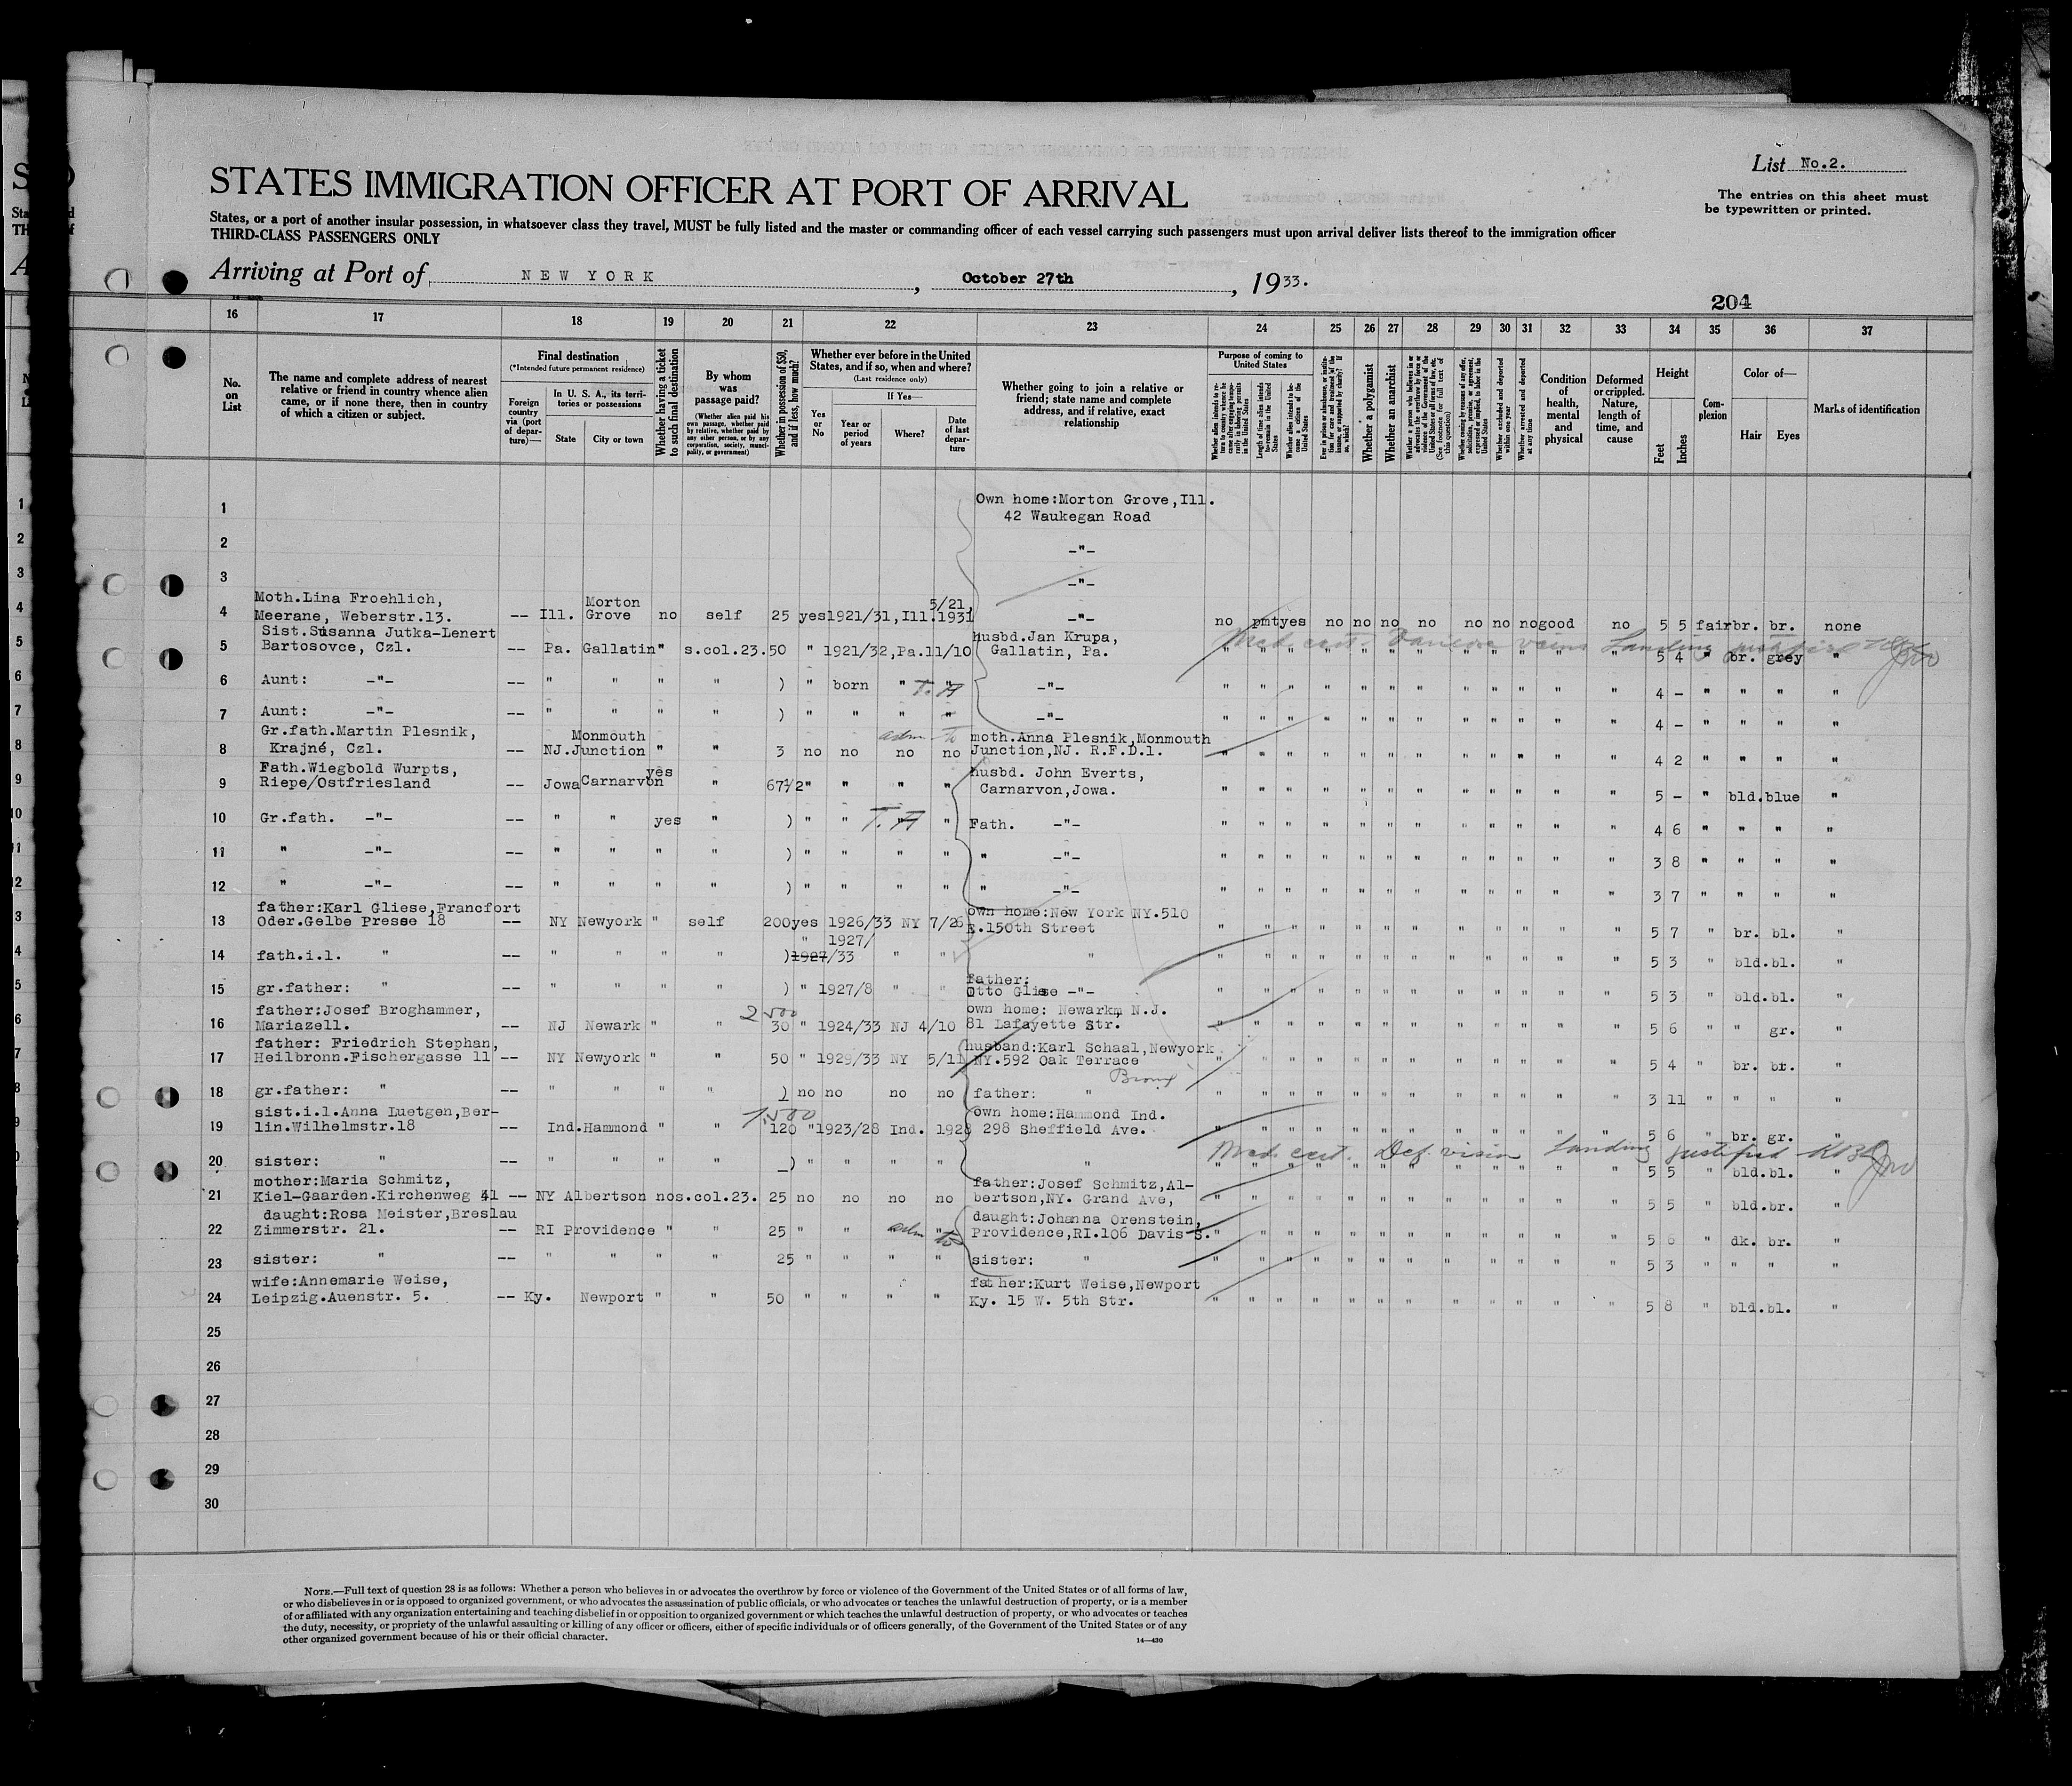 List No.2.
STATES IMMIGRATION OFFICER AT PORT OF ARRIVAL
The entries on this sheet must
be typewritten or printed.
States, or a port of another insular possession, in whatsoever class they travel, MUST be fully listed and the master or commanding officer of each vessel carrying such passengers must upon arrival deliver lists thereof to the immigration officer
THIRD-CLASS PASSENGERS ONLY
Arriving at Port of NEW YORK, October 27th, 1933.
204
16 17 18 19 20 21 22 23 24 25 26 27 28 29 30 31 32 33 34 35 36 37
No. on List
The name and complete address of nearest relative or friend in country whence alien came, or if none there, then in country of which a citizen or subject.
Final destination
(*Intended future permanent residence)
Foreign country via (port of departure)—
In U. S. A., its territories or possessions
State
City or town
Whether having a ticket to such final destination
By whom was passage paid?
(Whether alien paid his own passage, whether paid by relative, whether paid by any other person, or by any corporation, society, municipality, or government)
Whether in possession of $50, and if less, how much?
Whether ever before in the United States, and if so, when and where?
(Last residence only)
Yes or No
If Yes—
Year or period of years
Where?
Date of last departure
Whether going to join a relative or friend; state name and complete address, and if relative, exact relationship
Purpose of coming to United States
Whether a polygamist
Whether an anarchist
Whether excluded and deported within one year
Whether arrested and deported at any time
Condition of health, mental and physical
Deformed or crippled. Nature, length of time, and cause
Height
Feet
Inches
Complexion
Color of—
Hair
Eyes
Marks of identification
1 Own home:Morton Grove,Ill.
42 Waukegan Road
2 -"-
3 -"-
Moth.Lina Froehlich, Morton 5/21,
4 Meerane, Weberstr.13. -- Ill. Grove no self 25 yes1921/31,Ill.1931 -"- no pmtyes no no no no no no nogood no 5 5 fairbr. br. none
Sist.Susanna Jutka-Lenert husbd.Jan Krupa,
5 Bartosovce, Czl. -- Pa. Gallatin" s.col.23.50 " 1921/32,Pa.11/10 Gallatin, Pa. " " " " " " " " " " " " 5 4 " br. grey "
Med cert. Varicose veins Landing
6 Aunt: -"- -- " " " " ) " born " " -"- " " " " " " " " " " " " 4 - " " " "
T. A
7 Aunt: -"- -- " " " " ) " " " " -"- " " " " " " " " " " " " 4 - " " " "
Gr.fath.Martin Plesnik, Monmouth moth.Anna Plesnik,Monmouth
adm
8 Krajné, Czl. -- NJ.Junction " " 3 no no no no Junction,NJ. R.F.D.1. " " " " " " " " " " " " 4 2 " " " "
Fath.Wiegbold Wurpts, yes husbd. John Everts,
9 Riepe/Ostfriesland -- Jowa Carnarvon " 67½" " " " Carnarvon,Jowa. " " " " " " " " " " " " 5 - " bld.blue "
10 Gr.fath. -"- -- " " yes " ) " " " " Fath. -"- " " " " " " " " " " " " 4 6 " " " "
T. A
11 " -"- -- " " " " ) " " " " " -"- " " " " " " " " " " " " 3 8 " " " "
12 " -"- -- " " " " ) " " " " " -"- " " " " " " " " " " " " 3 7 " " " "
father:Karl Gliese,Francfort own home:New York NY.510
13 Oder.Gelbe Presse 18 -- NY Newyork " self 200yes 1926/33 NY 7/26 E.150th Street " " " " " " " " " " " " 5 7 " br. bl. "
" 1927/
14 fath.i.l. " -- " " " " )1927/33 " " " " " " " " " " " " " " " " 5 3 " bld.bl. "
father:
15 gr.father: " -- " " " " ) " 1927/8 " " Otto Gliese -"- " " " " " " " " " " " " 5 3 " bld.bl. "
father:Josef Broghammer, 2500 own home: Newarkm N.J.
16 Mariazell. -- NJ Newark " " 30 " 1924/33 NJ 4/10 81 Lafayette Str. " " " " " " " " " " " " 5 6 " " gr. "
father: Friedrich Stephan, husband:Karl Schaal,Newyork
17 Heilbronn.Fischergasse 11 -- NY Newyork " " 50 " 1929/33 NY 5/11 NY.592 Oak Terrace " " " " " " " " " " " " 5 4 " br. br. "
Bronx
18 gr.father: " -- " " " " ) no no no no father: " " " " " " " " " " " " " 3 11 " " " "
sist.i.l.Anna Luetgen,Ber- 1,500 own home:Hammond Ind.
19 lin.Wilhelmstr.18 -- Ind.Hammond " " 120 "1923/28 Ind. 1928 298 Sheffield Ave. " " " " " " " " " " " " 5 6 " br. gr. "
Med cert. Def. vision Landing justified
20 sister: " -- " " " " ) " " " " " " " " " " " " " " " " " 5 5 " bld.bl. "
mother:Maria Schmitz, father:Josef Schmitz,Al-
21 Kiel-Gaarden.Kirchenweg 41 -- NY Albertson nos.col.23. 25 no no no no bertson,NY. Grand Ave, " " " " " " " " " " " " 5 5 " bld.br. "
daught:Rosa Meister,Breslau daught:Johanna Orenstein,
22 Zimmerstr. 21. -- RI Providence " " 25 " " adm " Providence,RI.106 Davis S." " " " " " " " " " " " 5 6 " dk. br. "
23 sister: " -- " " " " 25 " " " " sister: " " " " " " " " " " " " " 5 3 " " " "
wife:Annemarie Weise, father:Kurt Weise,Newport
24 Leipzig.Auenstr. 5. -- Ky. Newport " " 50 " " " " Ky. 15 W. 5th Str. " " " " " " " " " " " " 5 8 " bld.bl. "
25
26
27
28
29
30
NOTE.—Full text of question 28 is as follows: Whether a person who believes in or advocates the overthrow by force or violence of the Government of the United States or of all forms of law,
or who disbelieves in or is opposed to organized government, or who advocates the assassination of public officials, or who advocates or teaches the unlawful destruction of property, or is a member
of or affiliated with any organization entertaining and teaching disbelief in or opposition to organized government or which teaches the unlawful destruction of property, or who advocates or teaches
the duty, necessity, or propriety of the unlawful assaulting or killing of any officer or officers, either of specific individuals or of officers generally, of the Government of the United States or of any
other organized government because of his or their official character.
14—430